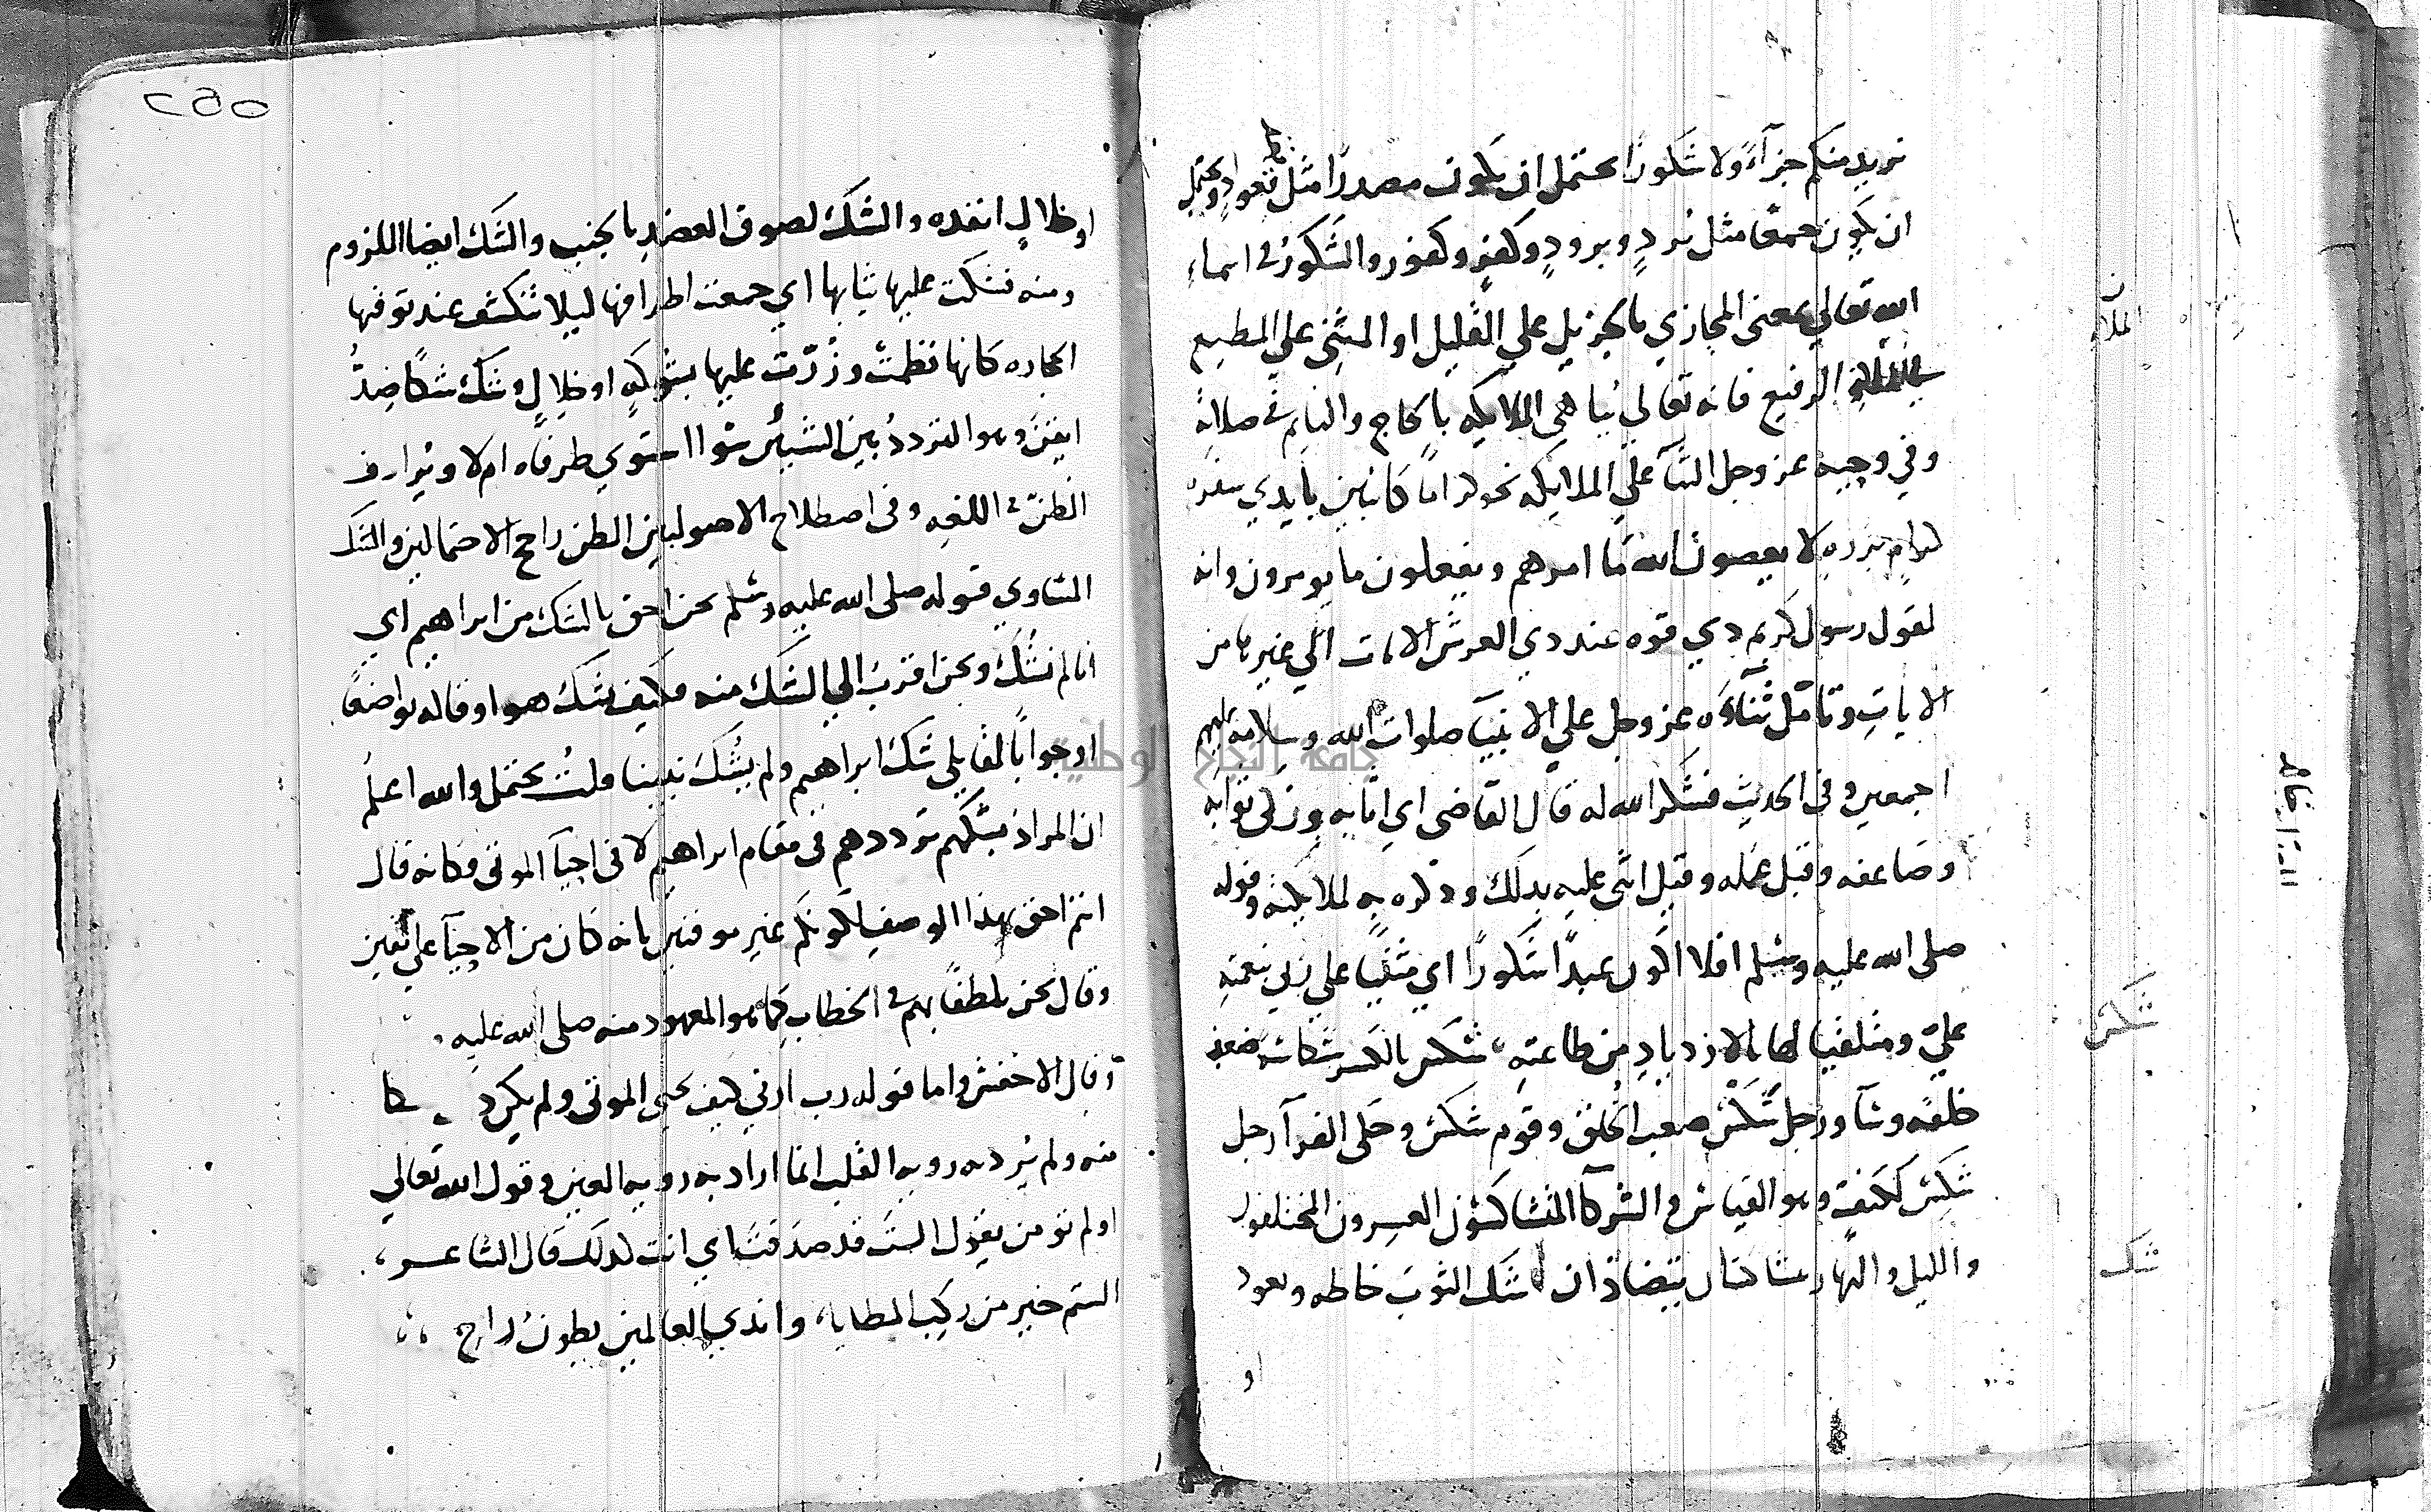 نريد منكم جزآءً ولا شكورًا يحتمل ان يكون مصدرًا مثل قعود ويحتمل
ان يكون جمعًا مثل بُردٍ وبرودٍ وكفرٍ وكفور والشكور في اسماء
الله تعالي بمعنى المجازي بالجزيل علي القليل او المثني علي المطيع
الرفيع فانه تعالي يُباهي الملايكه بالحاج والنايم في صلاته
وفي وحيه عز وجل الثنآ علي الملايكه نحو كرامًا كاتبين بايدي سفره
كرامٍ برره لا يعصون الله ما امرهم ويفعلون ما يومرون وانه
لقول رسول كريم ذي قوه عند ذي العرش الايات الي غيرها من
الايات وتامّل ثنآءَه عز وجل علي الانبيآ صلوات الله وسلامه عليهم
اجمعين وفي الحديث فشكر الله له قال القاضي اي اثابه وزكى ثوابه
وضاعفه وقبل عمله وقيل اثنى عليه بذلك وذكره به لملايكته وقوله
صلى الله عليه وسلم افلا اكون عبدًا شكورًا اي مثنيًا علي ربي بنعمته
عليّ ومتلقيًا لها بالازدياد من طاعته شكس بالكسر شكاسة صعب
خلقه وسآ ورجل شكس صعب الخلق وقوم شكس وحكى الفرآ رجل
شكس ككتف وهو القياس والشركآ المتشاكسون العسرون المختلفون
والليل والنهار يتشاكسان يتضادان شك الثوب خاطه وبعود
او
الملائ
شكس
شك
٢٥٥
او خلالٍ انفده والشك لصوق العضد بالجنب والشك ايضا اللزوم
ومنه فشكت عليها ثيابها اي جمعت اطرافها ليلا تنكشف عند توقيها
الحجاره كانها نظمت وزُرّت عليها بشوكهٍ او خلالٍ وشك شكًا ضدُّ
ايقن وهو التردد بين الشيئين سوا استوي طرفاه ام لا ويُرادف
الظنّ في اللغه وفي اصطلاح الاصوليين الظن راجح الاحتمالين والشك
التساوي قوله صلى الله عليه وسلم نحن احق بالشك من ابراهيم اي
انا لم نشك ونحن اقرب الي الشك منه فكيف يشك هو او قاله تواضعًا
او جوابًا لقايلي شك ابراهيم ولم يشك نبينا قلت يحتمل والله اعلم
ان المراد بشكهم ترددهم في مقام ابراهيم لا في احيآ الموتى وكانه قال
انتم احق بهذا الوصف لكونكم غير موقنين بانه كان من الاحيآ علي يقين
وقال نحن تلطفًا بهم في الخطاب كما هو المعهود منه صلى الله عليه
وقال الاخفش واما قوله رب ارني كيف تحيي الموتى ولم يكن د
منه ولم يُرد به رويه القلب انما اراد به رويه العين وقول الله تعالي
اولم تومن يقول الست قد صدقت اي انت كذلك قال الشاعر
الستم خير من ركب المطايا واندي العالمين بطون راح
جامعة النجاح الوطنية